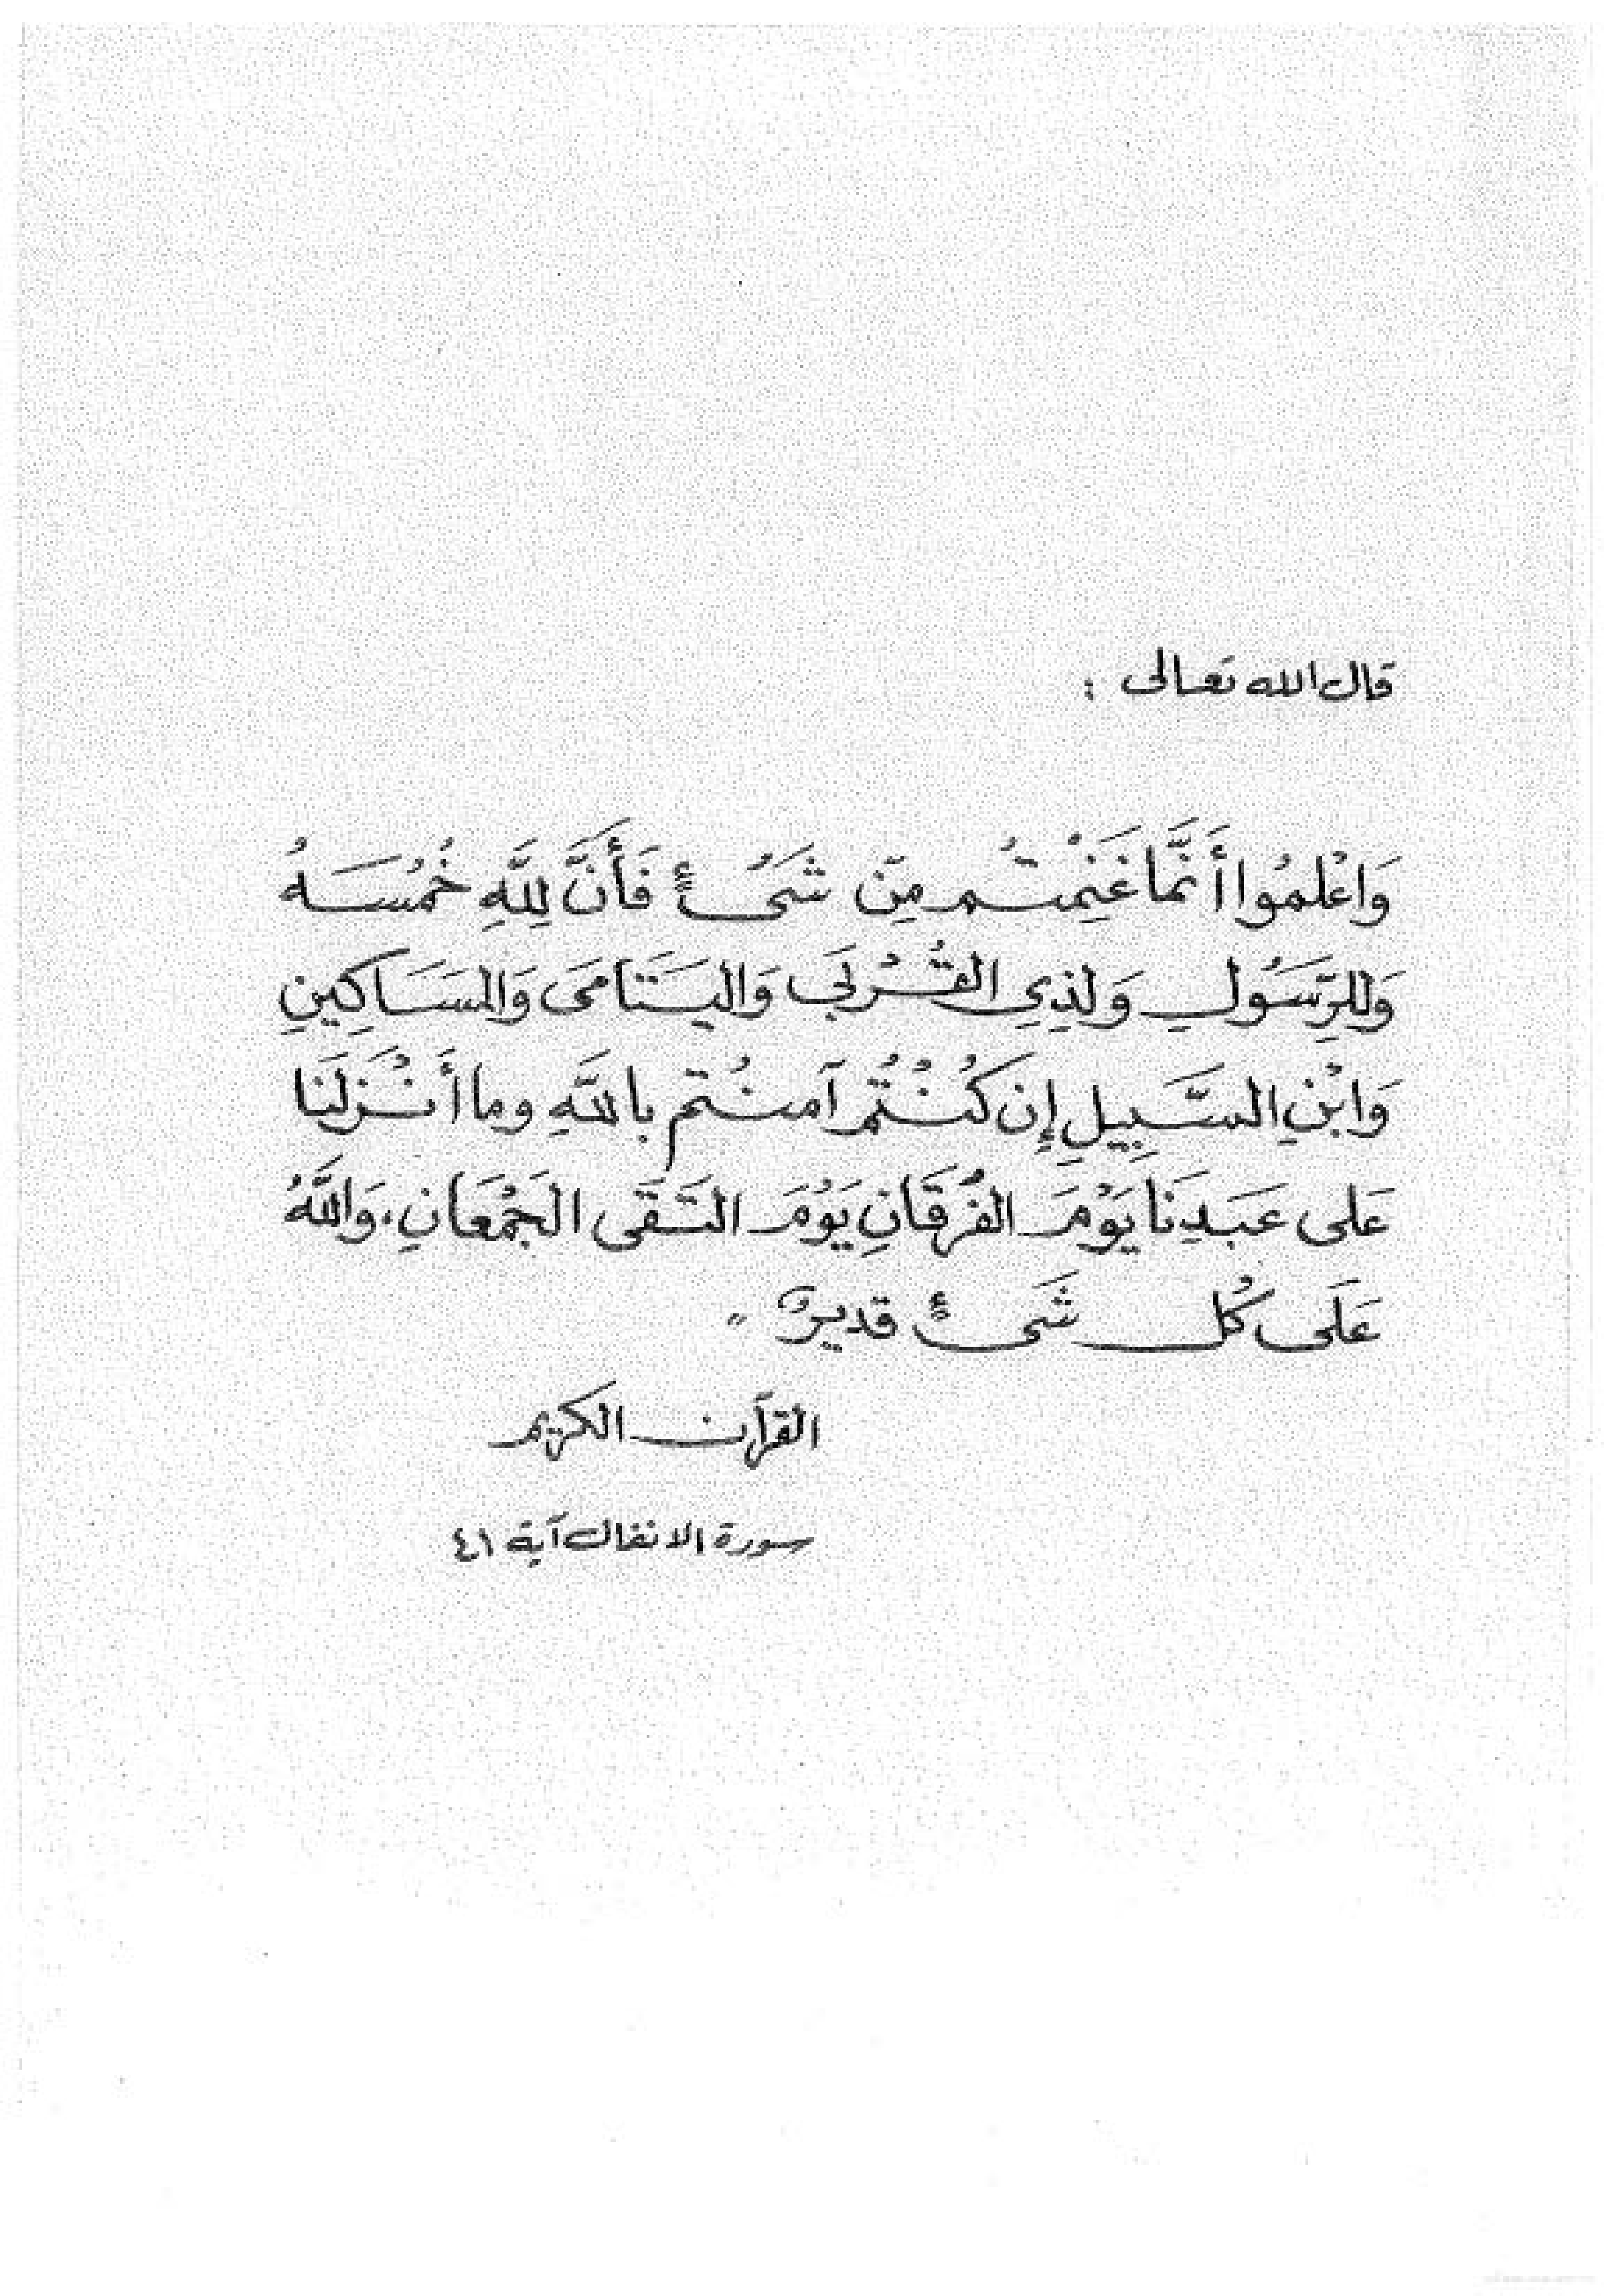 قال الله تعالى :
وَاعْلَمُوا أَنَّمَا غَنِمْتُم مِّن شَىْءٍ فَأَنَّ لِلَّهِ خُمُسَهُ
وَلِلرَّسُولِ وَلِذِي القُرْبَى وَاليَتَامَى وَالمَسَاكِينِ
وَابْنِ السَّبِيلِ إِن كُنْتُمْ آمنْتم بِاللَّهِ وما أَنْزَلْنَا
عَلى عَبْدِنَا يَوْمَ الفُرْقَانِ يَوْمَ التَقَى الجَمْعَانِ، وَاللَّهُ
عَلَى كُل شَىءٍ قديرٌ "
القرآن الكريم
سورة الانفال آية ٤١